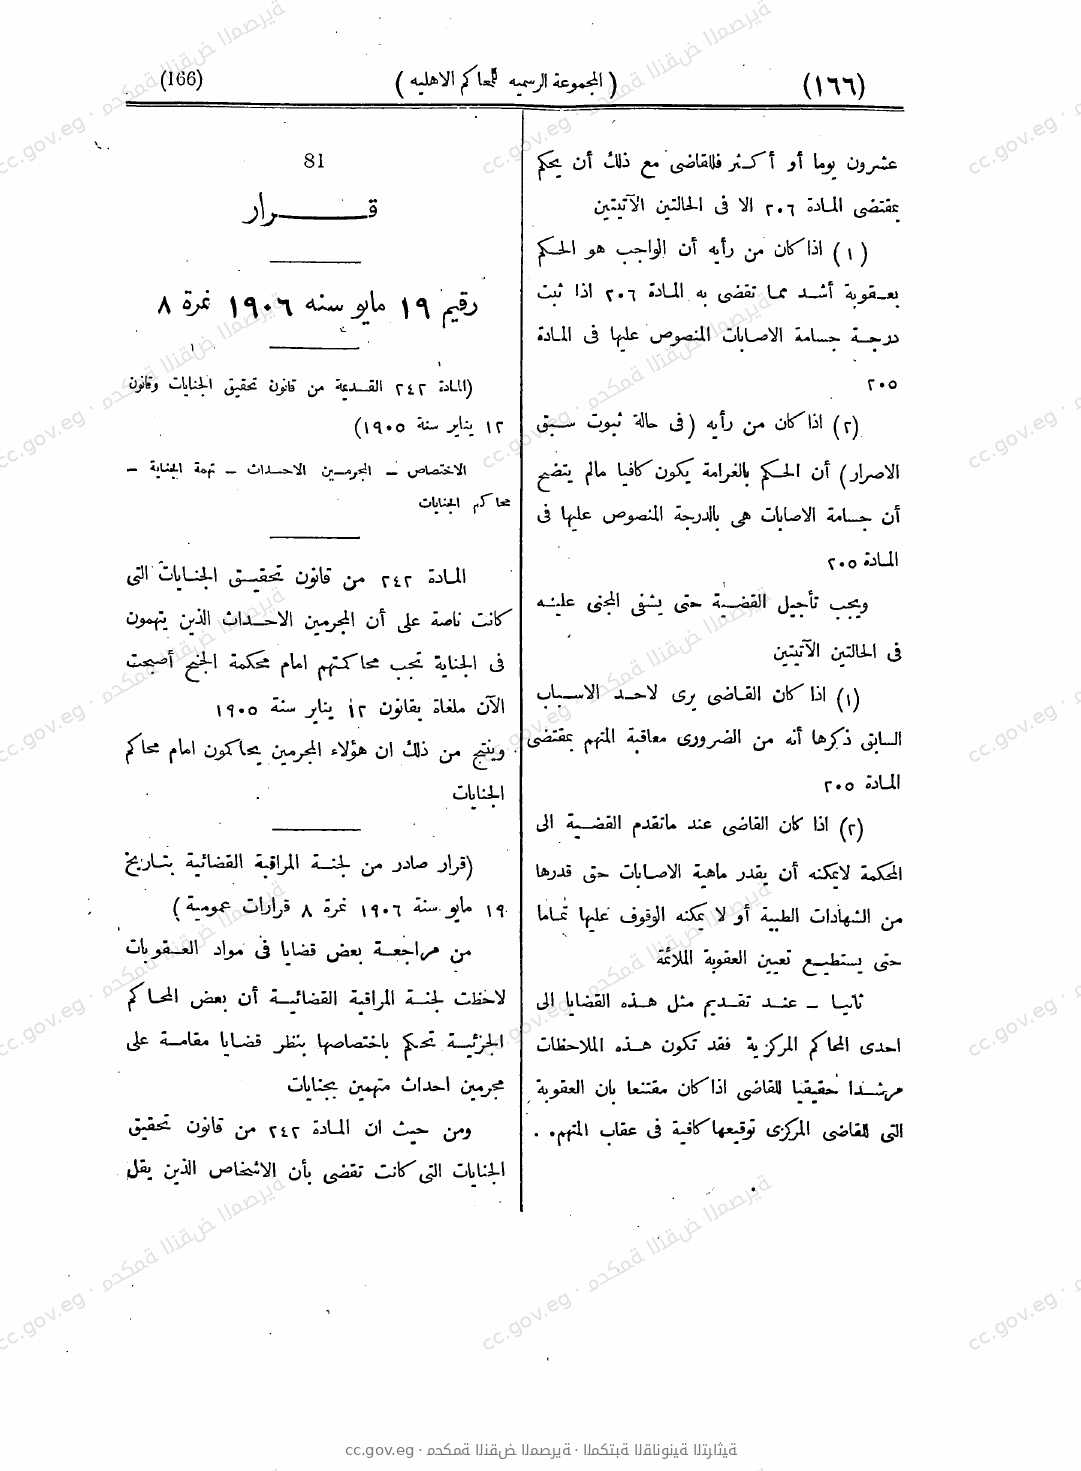 (١٦٦)
(المجموعة الرسمية للمحاكم الاهليه)
(166)
عشرون يوما أو أكثر فللقاضى مع ذلك أن يحكم
بمقتضى المادة ٢٠٦ الا فى الحالتين الآتيتين
(١) اذا كان من رأيه أن الواجب هو الحكم
بعقوبة أشد مما تقضى به المادة ٢٠٦ اذا ثبت
درجة جسامة الاصابات المنصوص عليها فى المادة
٢٠٥
(٢) اذا كان من رأيه (فى حالة ثبوت سبق
الاصرار) أن الحكم بالغرامة يكون كافيا مالم يتضح
أن جسامة الاصابات هى بالدرجة المنصوص عليها فى
المادة ٢٠٥
ويجب تأجيل القضية حتى يشفى المجنى عليه
فى الحالتين الآتيتين
(١) اذا كان القاضى يرى لاحد الاسباب
السابق ذكرها أنه من الضرورى معاقبة المتهم بمقتضى
المادة ٢٠٥
(٢) اذا كان القاضى عند ماتقدم القضية الى
المحكمة لايمكنه أن يقدر ماهية الاصابات حق قدرها
من الشهادات الطبية أو لا يمكنه الوقوف عليها تماما
حتى يستطيع تعيين العقوبة الملائمة
ثانيا – عند تقديم مثل هذه القضايا الى
احدى المحاكم المركزية فقد تكون هذه الملاحظات
مرشدا حقيقيا للقاضى اذا كان مقتنعا بان العقوبة
التى للقاضى المركزى توقيعها كافية فى عقاب المتهم.
81
قرار
رقيم ١٩ مايو سنه ١٩٠٦ نمرة ٨
(المادة ٢٤٢ القديمة من قانون تحقيق الجنايات وقانون
١٢ يناير سنة ١٩٠٥)
الاختصاص – المجرمين الاحداث – تهمة الجناية –
محاكم الجنايات
المادة ٢٤٢ من قانون تحقيق الجنايات التى
كانت ناصة على أن المجرمين الاحداث الذين يتهمون
فى الجناية تجب محاكمتهم امام محكمة الجنح أصبحت
الآن ملغاة بقانون ١٢ يناير سنة ١٩٠٥
وينتج من ذلك ان هؤلاء المجرمين يحاكمون امام محاكم
الجنايات
(قرار صادر من لجنة المراقبة القضائية بتاريخ
١٩ مايو سنة ١٩٠٦ نمرة ٨ قرارات عمومية)
من مراجعة بعض قضايا فى مواد العقوبات
لاحظت لجنة المراقبة القضائية أن بعض المحاكم
الجزئية تحكم باختصاصها بنظر قضايا مقامة على
مجرمين احداث متهمين بجنايات
ومن حيث ان المادة ٢٤٢ من قانون تحقيق
الجنايات التى كانت تقضى بأن الاشخاص الذين يقل
cc.gov.eg · محكمة النقض المصرية · المكتبة القانونية التراثية